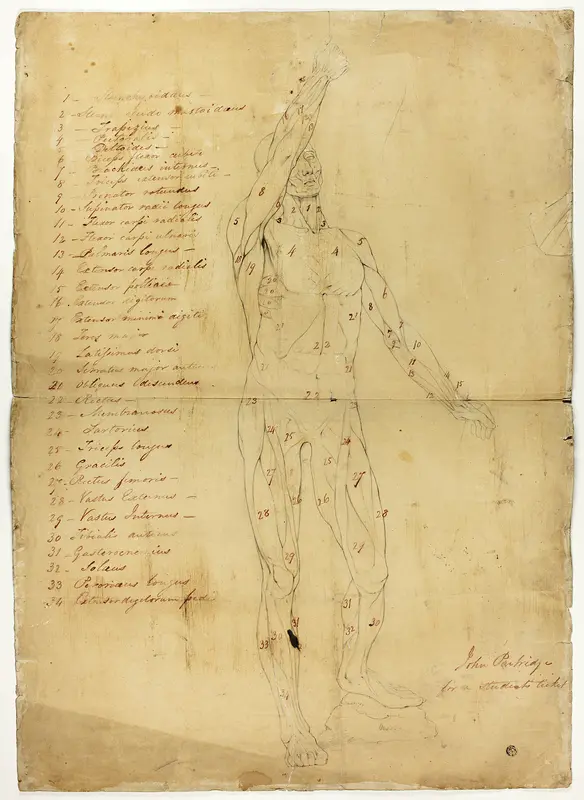 1 -
2 - Sterno Cleido mastoidaeus
3 - Trapezius -
4 - Pectoralis -
5 - Deltoides -
6 Biceps flexor cubiti
7 - Brachiaeus internus -
8 Triceps extensor cubiti -
9 - Pronator rotundus
10 - Supinator radii longus
11 - Flexor carpi radialis
12 - Flexor carpi ulnaris
13 - Palmaris longus -
14 Extensor carpi radialis
15 Extensor
16 Extensor digitorum
17 Extensor minimi digiti
18 Teres major
19 Latissimus dorsi
20 Serratus major
20 Obliquus descendens
22 Rectus -
23 - Membranosus
24 - Sartorius
25 - Triceps longus
26 Gracilis
27 - Rectus femoris -
28 - Vastus Externus -
29 - Vastus Internus -
30 Tibialis
31 - Gasterocnemius
32 - Solaeus
33 Peronaeus longus
34 Extensor digitorum
John Partridge
for a students ticket